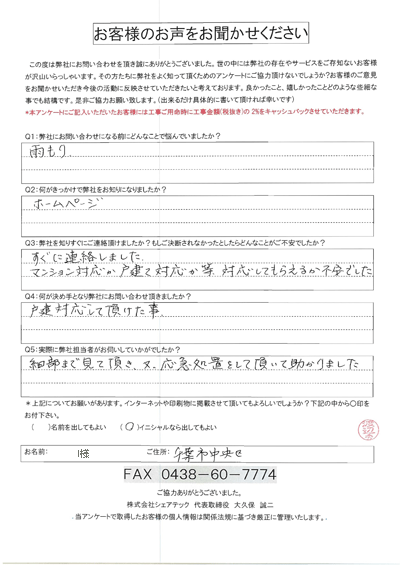 お客様のお声をお聞かせください
この度は弊社にお問い合わせを頂き誠にありがとうございました。世の中には弊社の存在やサービスをご存知ないお客様
が沢山いらっしゃいます。その方たちに弊社をよく知って頂くためのアンケートにご協力頂けないでしょうか?お客様のご意見
をお聞かせいただき今後の活動に反映させていただきたいと考えております。良かったこと、嬉しかったことどのような些細な
事でも結構です。是非ご協力お願い致します。(出来るだけ具体的に書いて頂ければ幸いです)
*本アンケートにご記入いただいたお客様には工事ご用命時に工事金額(税抜き)の 2%をキャッシュバックさせていただきます。
Q1:弊社にお問い合わせになる前にどんなことで悩んでいましたか?
雨もり.
Q2:何がきっかけで弊社をお知りになりましたか?
ホームページ
Q3:弊社を知りすぐにご連絡頂けましたか?もしご決断されなかったとしたらどんなことがご不安でしたか?
すぐに連絡しました.
マンション対応か戸建て対応か等、対応してもらえるか不安でした
Q4:何が決め手となり弊社にお問い合わせ頂きましたか?
戸建対応して頂けた事.
Q5:実際に弊社担当者がお伺いしていかがでしたか?
細部まで見て頂き、又、応急処置をして頂いて助かりました
*上記についてお願いがあります。インターネットや印刷物に掲載させて頂いてもよろしいでしょうか?下記の中から〇印を
お付下さい。
( )名前を出してもよい (〇)イニシャルなら出してもよい
お名前: I様 ご住所: 千葉市中央区
FAX 0438-60-7774
ご協力ありがとうございました。
株式会社シェアテック 代表取締役 大久保 誠二
当アンケートで取得したお客様の個人情報は関係法規に基づき厳正に管理いたします。